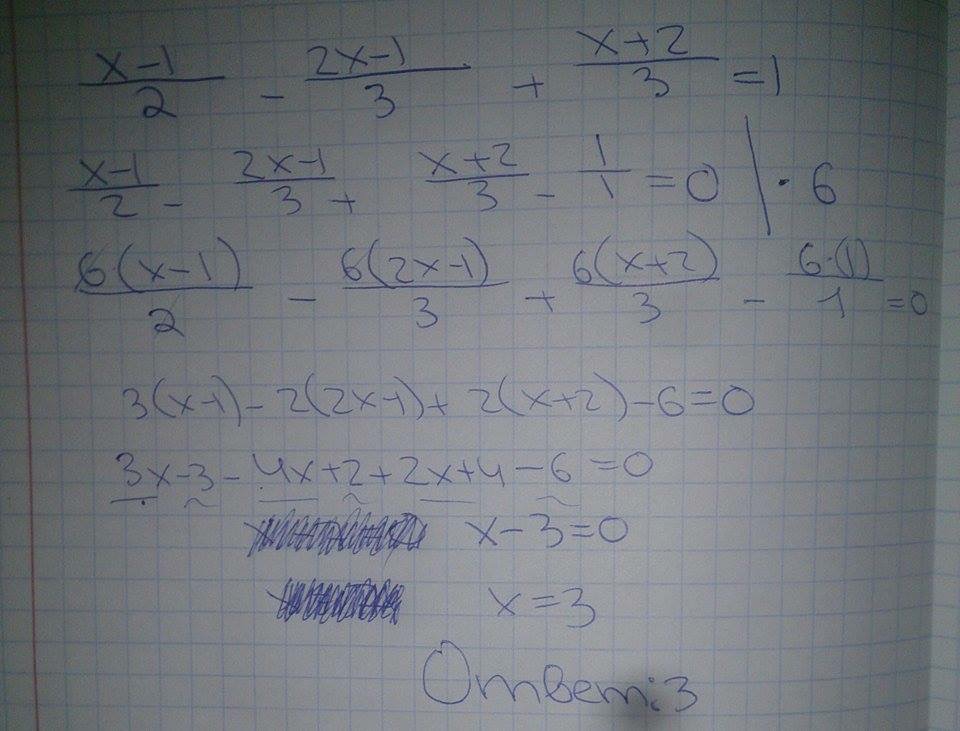 x-1/2 - 2x-1/3 + x+2/3 = 1
x-1/2 - 2x-1/3 + x+2/3 - 1/1 = 0 | · 6
6(x-1)/2 - 6(2x-1)/3 + 6(x+2)/3 - 6·(1)/1 = 0
3(x-1) - 2(2x-1) + 2(x+2) - 6 = 0
3x - 3 - 4x + 2 + 2x + 4 - 6 = 0
x - 3 = 0
x = 3
Ответ: 3